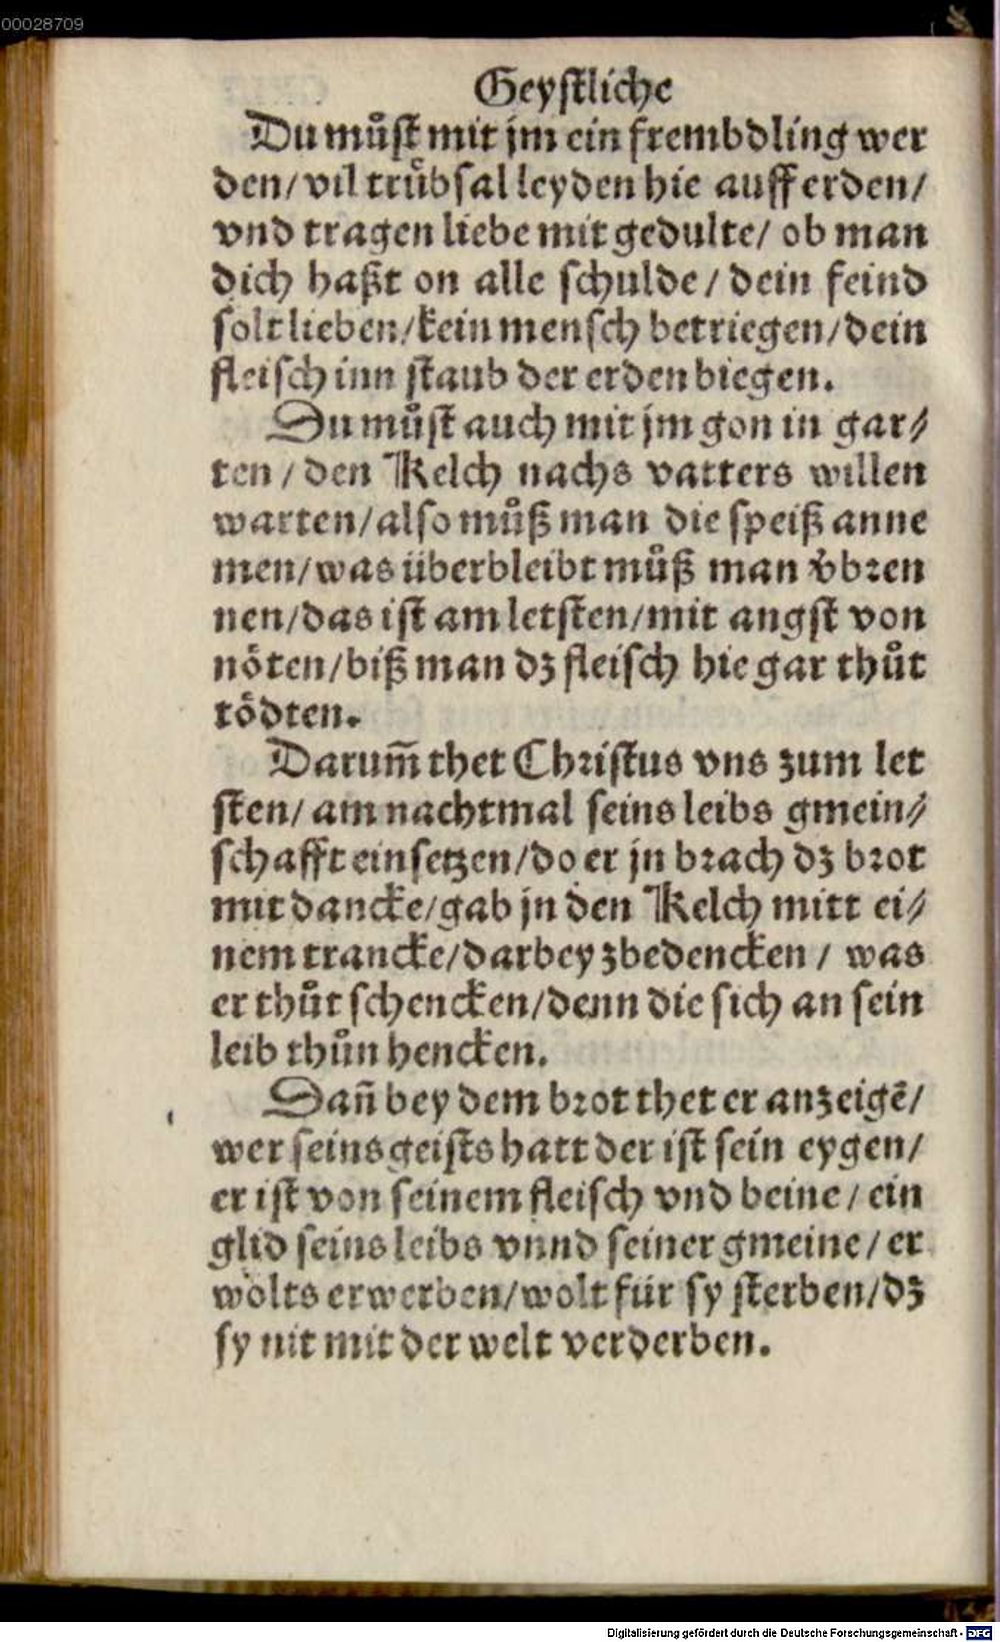 00028709
Geystliche
Du muͦst mit jm ein frembdling wer
den/ vil truͤbsal leyden hie auff erden/
vnd tragen liebe mit gedulte/ ob man
dich haßt on alle schulde / dein feind
solt lieben/ kein mensch betriegen/ dein
fleisch inn staub der erden biegen.
Du muͦst auch mit jm gon in gar⸗
ten / den Kelch nachs vatters willen
warten/ also muͦß man die speiß anne
men/ was überbleibt muͦß man v̊bren
nen/ das ist am letsten/ mit angst von
noͤten/ biß man dz fleisch hie gar thuͦt
toͤdten.
Darum̄ thet Christus vns zum let
sten/ am nachtmal seins leibs gmein⸗
schafft einsetzen/ do er jn brach dz brot
mit dancke/ gab jn den Kelch mitt ei⸗
nem trancke/ darbey zbedencken / was
er thuͦt schencken/ denn die sich an sein
leib thuͦn hencken.
Dan̄ bey dem brot thet er anzeigē/
wer seins geists hatt der ist sein eygen/
er ist von seinem fleisch vnd beine / ein
glid seins leibs vnnd seiner gmeine / er
wolts erwerben/ wolt für sy sterben/ dz
sy nit mit der welt verderben.
Digitalisierung gefördert durch die Deutsche Forschungsgemeinschaft - DFG